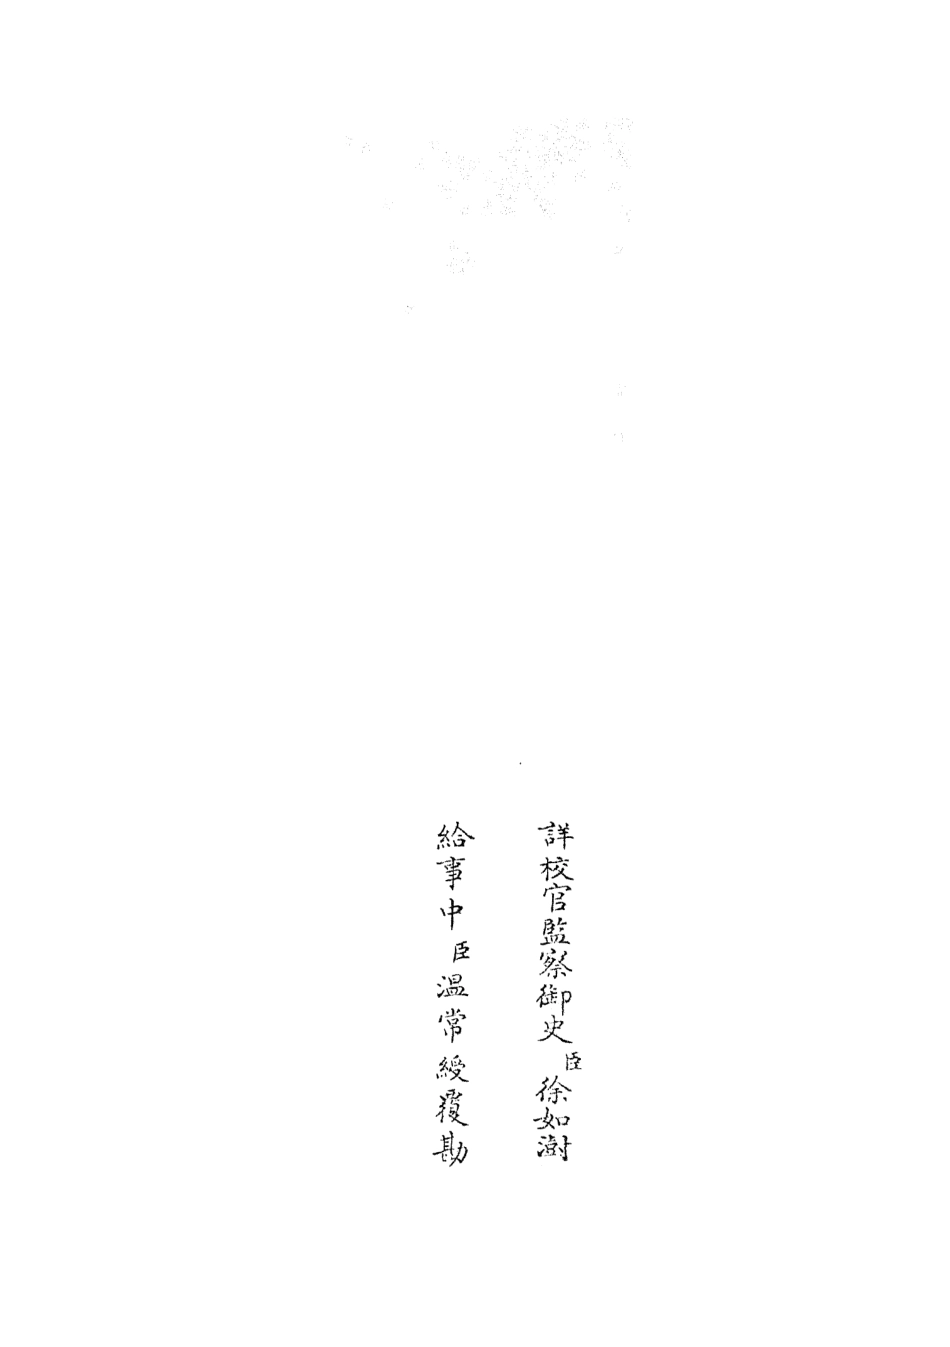 詳校官監察御史臣徐如澍
給事中臣溫常綬覆勘